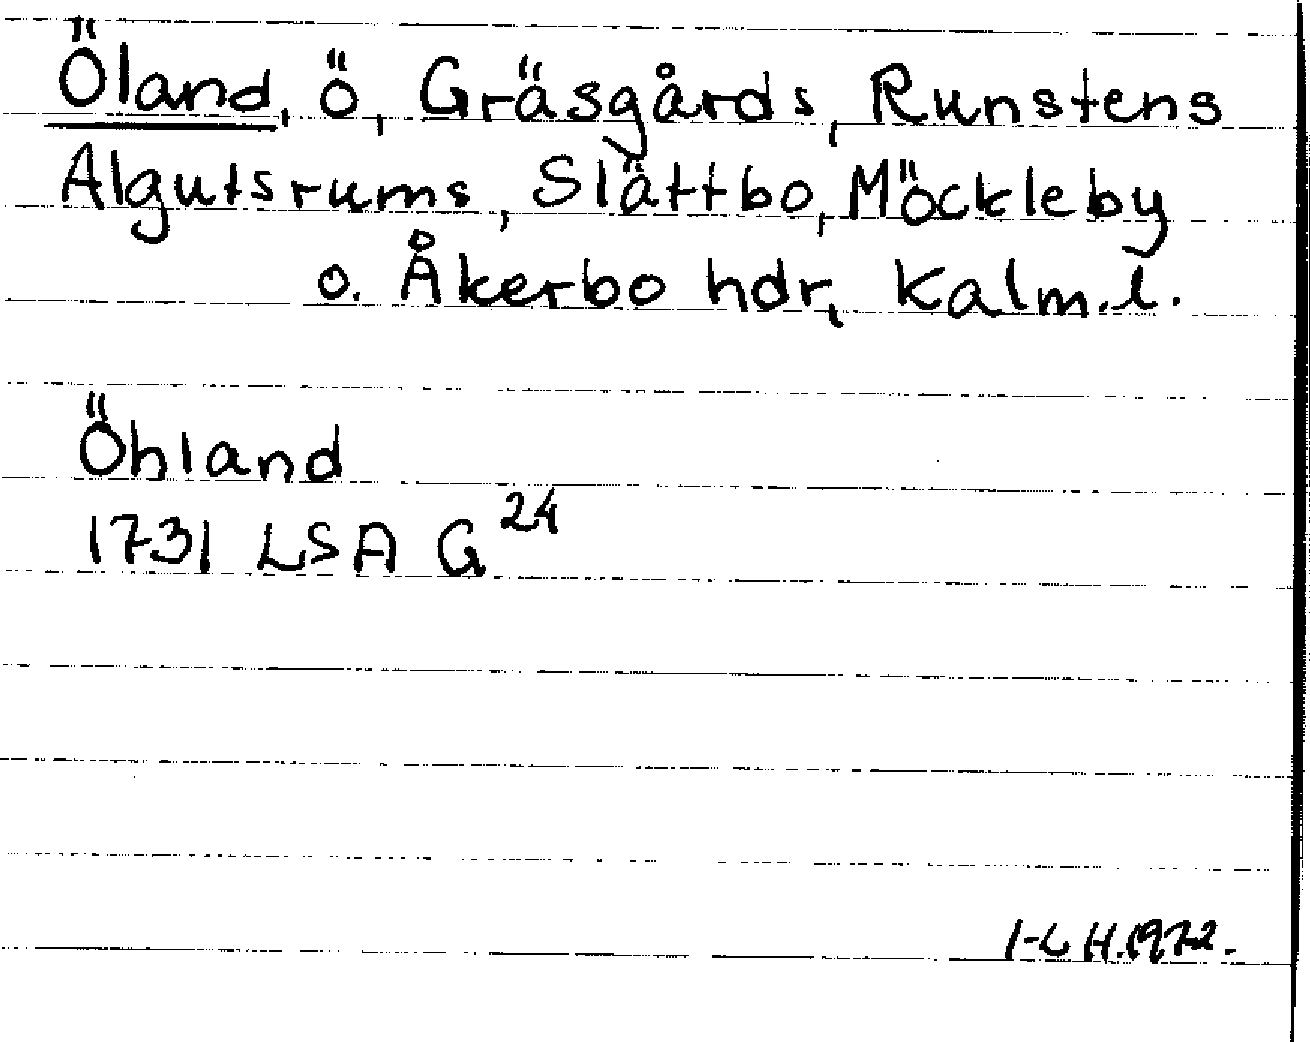 Öland, ö, Gräsgårds, Runstens
Algutsrums, Slättbo, Möckleby
o. Åkerbo hdr, Kalm.l.
Öhland
1731 LSA G 24
I-L H.1972.